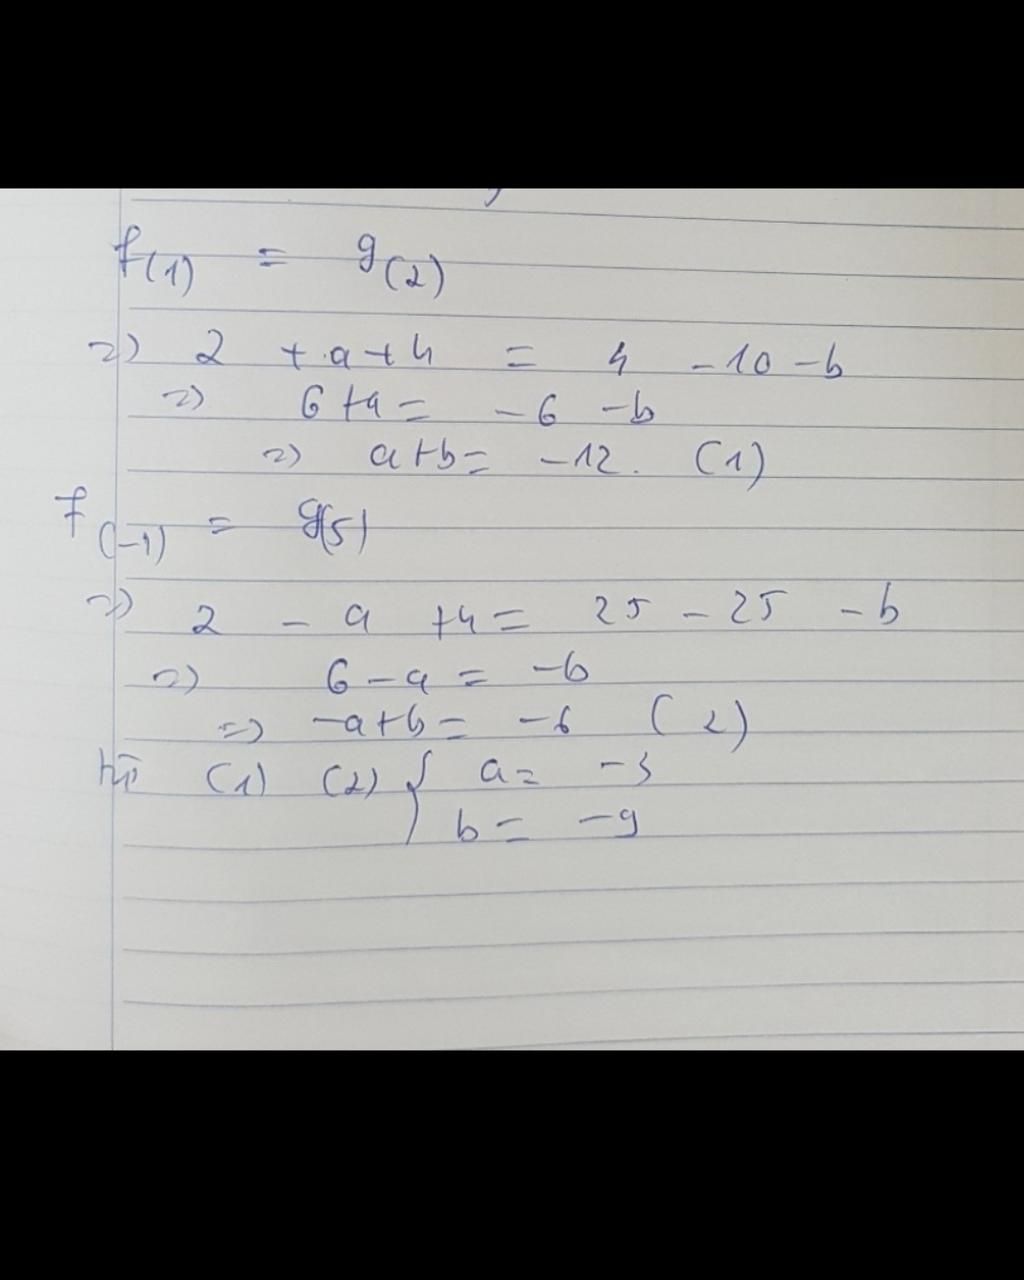 f(1) = g(2)
=> 2 + a + 4 = 4 - 10 - b
=> 6 + a = - 6 - b
=> a + b = -12. (1)
f(-1) = g(5)
=> 2 - a + 4 = 25 - 25 - b
=> 6 - a = -b
=> -a + b = -6 (2)
từ (1) (2) { a = -3
b = -9